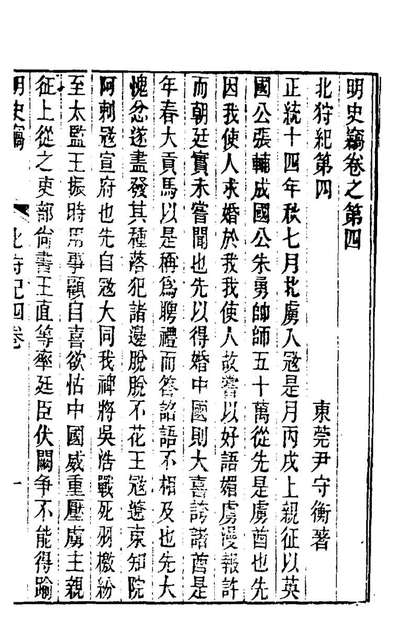 明史竊卷之第四
北狩紀第四
東莞尹守衡著
正統十四年秋七月北虜入寇是月丙戌上親征以英
國公張輔成國公朱勇帥師五十萬從先是虜酋也先
因我使人求婚於我我使人故嘗以好語媚虜漫報許
而朝廷實未嘗聞也先以得婚中國則大喜誇諸酋是
年春大貢馬以是稱爲聘禮而答詔語不相及也先大
愧忿遂盡發其種落犯諸邊脫脫不花王寇遼東知院
阿剌寇宣府也先自寇大同我禆將吳浩戰死羽檄紛
至太監王振時用事顧自喜欲怙中國威重壓虜主親
征上從之吏部尚書王直等率廷臣伏闕爭不能得踰
明史竊 北狩紀四卷 一